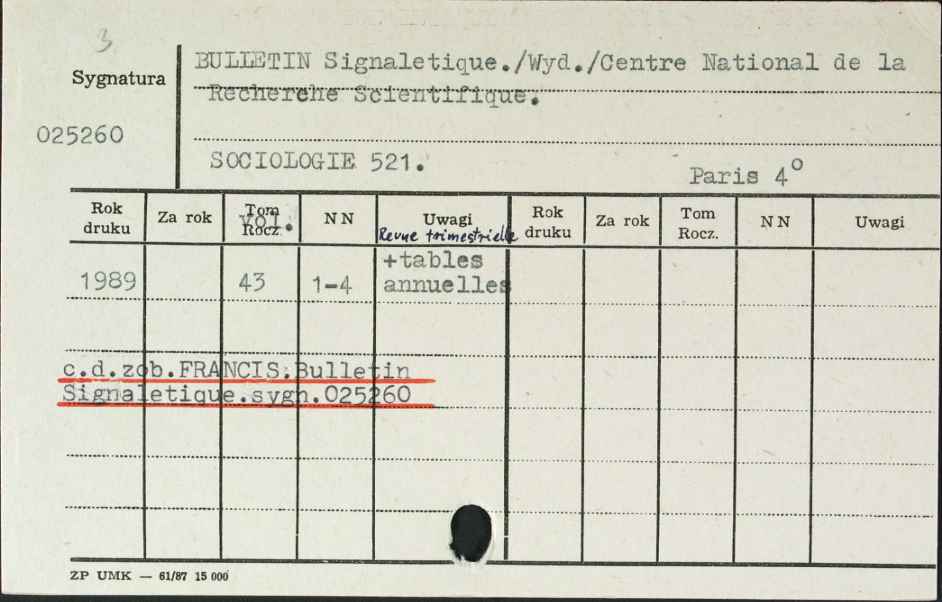 3
Sygnatura
025260
BULLETIN Signaletique./Wyd./Centre National de la
Recherche Scientifique.
SOCIOLOGIE 521.
Paris 4°
Rok druku Za rok Tom Rocz. vol. NN Uwagi Revue trimestrielle Rok druku Za rok Tom Rocz. NN Uwagi
1989 43 1-4 +tables
annuelles
c.d.zob.FRANCIS.Bulletin
Signaletique.sygn.025260
ZP UMK — 61/87 15 000